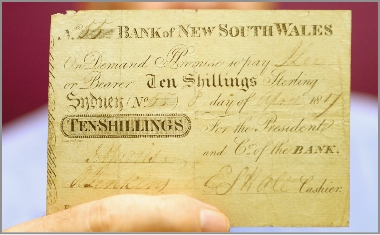 BANK of NEW SOUTH WALES
On Demand I Promise to pay
or Bearer Ten Shillings Sterling
Sydney (No. 8 day of April 1817
TEN SHILLINGS
For the President
and Co. of the BANK.
Cashier.